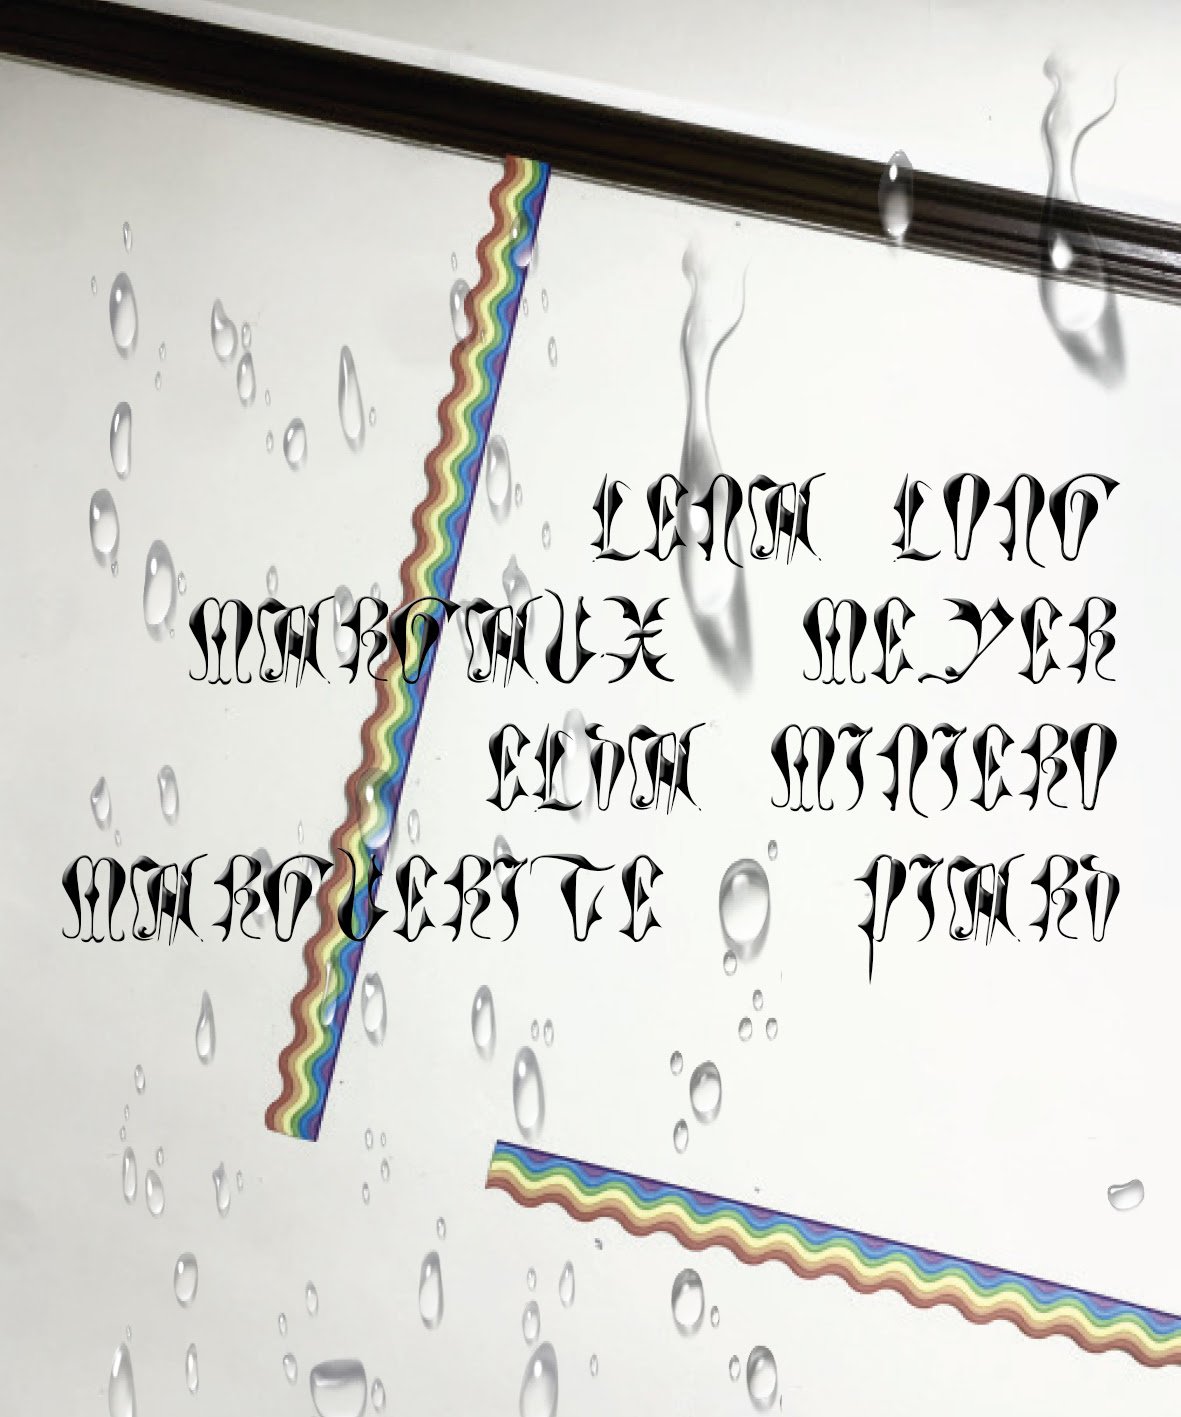 LENA LONG
MARGAUX MEYER
ELDA MINIERO
MARGUERITE PIARD